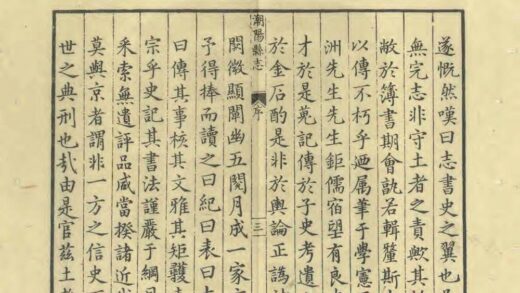 遂慨然嘆曰志書史之翼也
無完志非守土者之責歟其
敝於簿書期會孰若輯釐斯
以傳不朽乎廼属筆于學憲
洲先生先生鉅儒宿望有良
才於是蒐記傳於子史考遺
於金石酌是非於輿論正譌
潮陽縣志
序
三
闕徵顯闡幽五閱月成一家
予得捧而讀之曰紀曰表曰
曰傳其事核其文雅其矩矱
宗乎史記其書法謹嚴于綱
釆索無遺評品咸當揆諸近
莫與京者謂非一方之信史
世之典刑也㢤由是官兹土